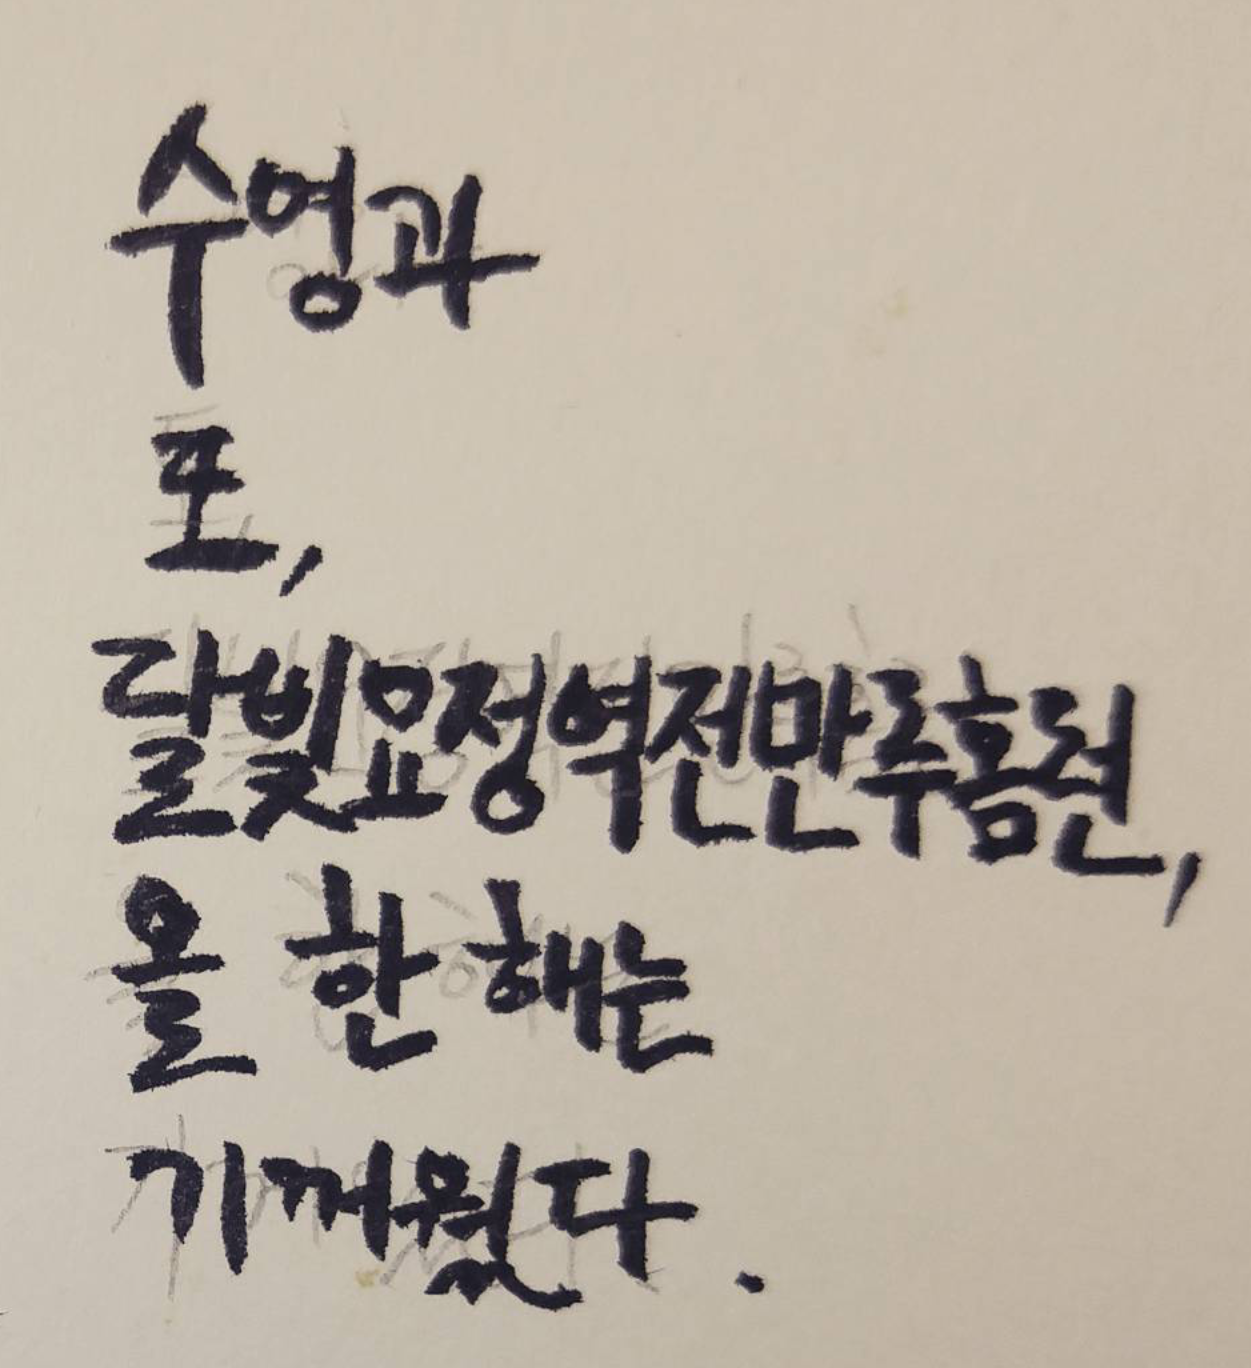 수영과
포,
달빛요정역전만루홈런,
올 한해는
기꺼웠다.